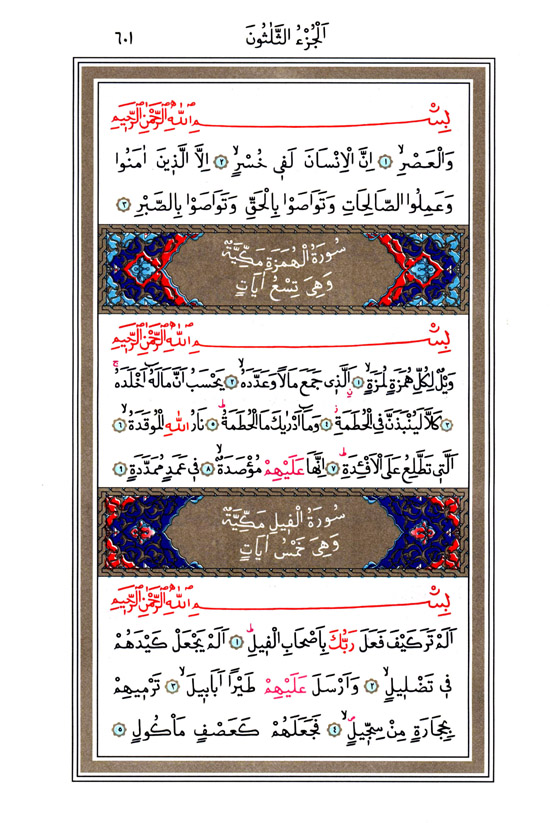 اَلْجُزْءُ الثَّلٰثُونَ
٦٠١
بِسْمِ اللّٰهِ الرَّحْمٰنِ الرَّحِيمِ
وَالْعَصْرِۙ ﴿١﴾ اِنَّ الْاِنْسَانَ لَفٖى خُسْرٍۙ ﴿٢﴾ اِلَّا الَّذٖينَ اٰمَنُوا
وَعَمِلُوا الصَّالِحَاتِ وَتَوَاصَوْا بِالْحَقِّ وَتَوَاصَوْا بِالصَّبْرِ ﴿٣﴾
سُورَةُ الْهُمَزَةِ مَكِّيَّةٌ
وَهِىَ تِسْعُ اٰيَاتٍ
بِسْمِ اللّٰهِ الرَّحْمٰنِ الرَّحِيمِ
وَيْلٌ لِكُلِّ هُمَزَةٍ لُمَزَةٍۙ ﴿١﴾ اَلَّذٖى جَمَعَ مَالًا وَعَدَّدَهُۙ ﴿٢﴾ يَحْسَبُ اَنَّ مَالَهُٓ اَخْلَدَهُۚ
﴿٣﴾ كَلَّا لَيُنْبَذَنَّ فِى الْحُطَمَةِۘ ﴿٤﴾ وَمَٓا اَدْرٰيكَ مَا الْحُطَمَةُؕ ﴿٥﴾ نَارُ اللّٰهِ الْمُوقَدَةُۙ ﴿٦﴾
اَلَّتٖى تَطَّلِعُ عَلَى الْاَفْـِٔدَةِؕ ﴿٧﴾ اِنَّهَا عَلَيْهِمْ مُؤْصَدَةٌۙ ﴿٨﴾ فٖى عَمَدٍ مُمَدَّدَةٍ ﴿٩﴾
سُورَةُ الْفٖيلِ مَكِّيَّةٌ
وَهِىَ خَمْسُ اٰيَاتٍ
بِسْمِ اللّٰهِ الرَّحْمٰنِ الرَّحِيمِ
اَلَمْ تَرَ كَيْفَ فَعَلَ رَبُّكَ بِاَصْحَابِ الْفٖيلِؕ ﴿١﴾ اَلَمْ يَجْعَلْ كَيْدَهُمْ
فٖى تَضْلٖيلٍۙ ﴿٢﴾ وَاَرْسَلَ عَلَيْهِمْ طَيْرًا اَبَابٖيلَۙ ﴿٣﴾ تَرْمٖيهِمْ
بِحِجَارَةٍ مِنْ سِجّٖيلٍۙ ﴿٤﴾ فَجَعَلَهُمْ كَعَصْفٍ مَاْكُولٍ ﴿٥﴾